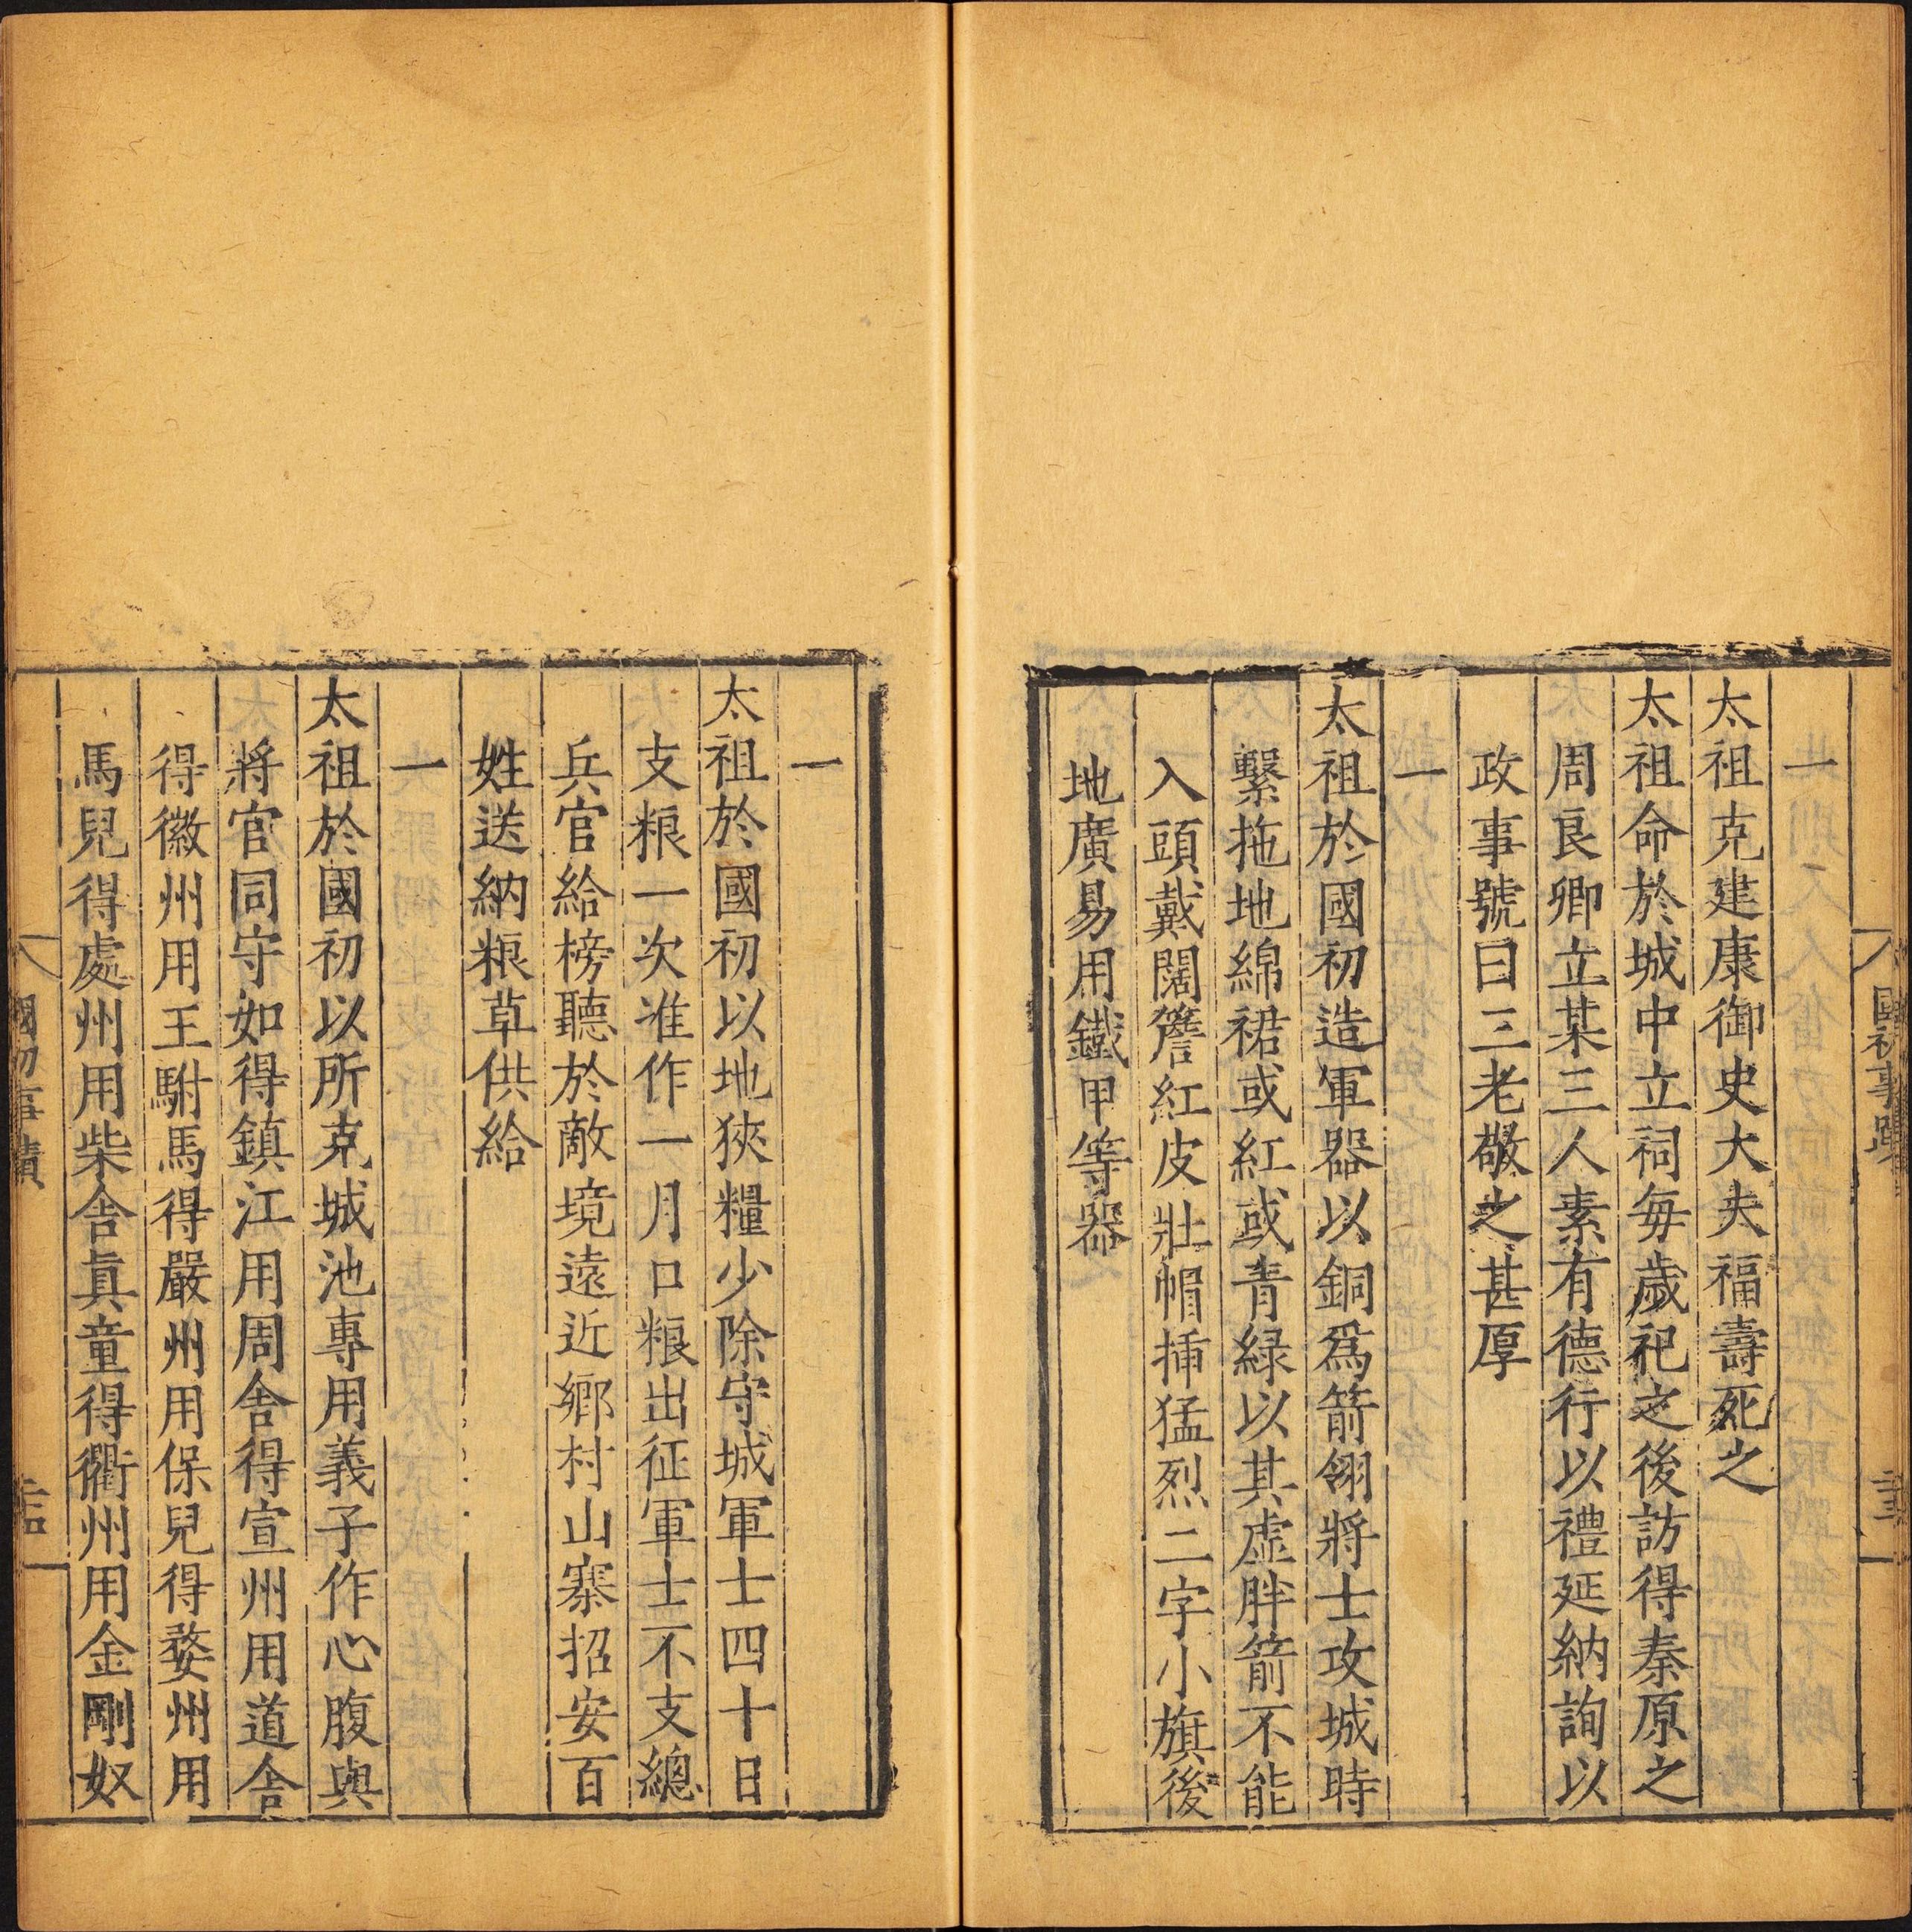 國初事蹟
一
太祖克建康御史大夫福壽死之
太祖命於城中立祠每歲祀之後訪得秦原之
周良卿立某三人素有德行以禮延納詢以
政事號曰三老敬之甚厚
一
太祖於國初造軍器以銅爲箭翎將士攻城時
繫拖地綿裙或紅或青綠以其虛胖箭不能
入頭戴闊簷紅皮壯帽揷猛烈二字小旗後
地廣易用鐵甲等器
一
太祖於國初以地狹糧少除守城軍士四十日
支粮一次准作一月口粮出征軍士不支總
兵官給榜聽於敵境遠近鄉村山寨招安百
姓送納粮草供給
一
太祖於國初以所克城池專用義子作心腹與
將官同守如得鎮江用周舎得宣州用道舎
得徽州用王駙馬得嚴州用保兒得婺州用
馬兒得處州用柴舎眞童得衢州用金剛奴
國初事蹟